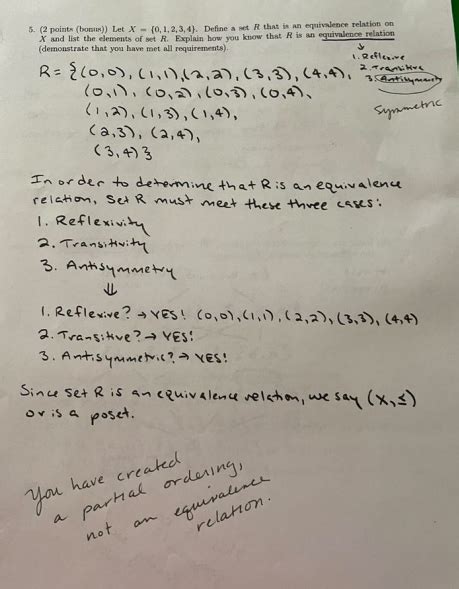 5. (2 points (bonus)) Let X = {0, 1, 2, 3, 4}. Define a set R that is an equivalence relation on
X and list the elements of set R. Explain how you know that R is an equivalence relation
(demonstrate that you have met all requirements).
1. Reflexive
2. Transitive
3. Antisymmetry
Symmetric
R = {(0,0), (1,1), (2,2), (3,3), (4,4),
(0,1), (0,2), (0,3), (0,4),
(1,2), (1,3), (1,4),
(2,3), (2,4),
(3,4)}
In order to determine that R is an equivalence
relation, set R must meet these three cases:
1. Reflexivity
2. Transitivity
3. Antisymmetry
⇓
1. Reflexive? → YES! (0,0), (1,1), (2,2), (3,3), (4,4)
2. Transitive? → YES!
3. Antisymmetric? → YES!
Since set R is an equivalence relation, we say (X, ≤)
or is a poset.
You have created
a partial ordering,
not an equivalence
relation.